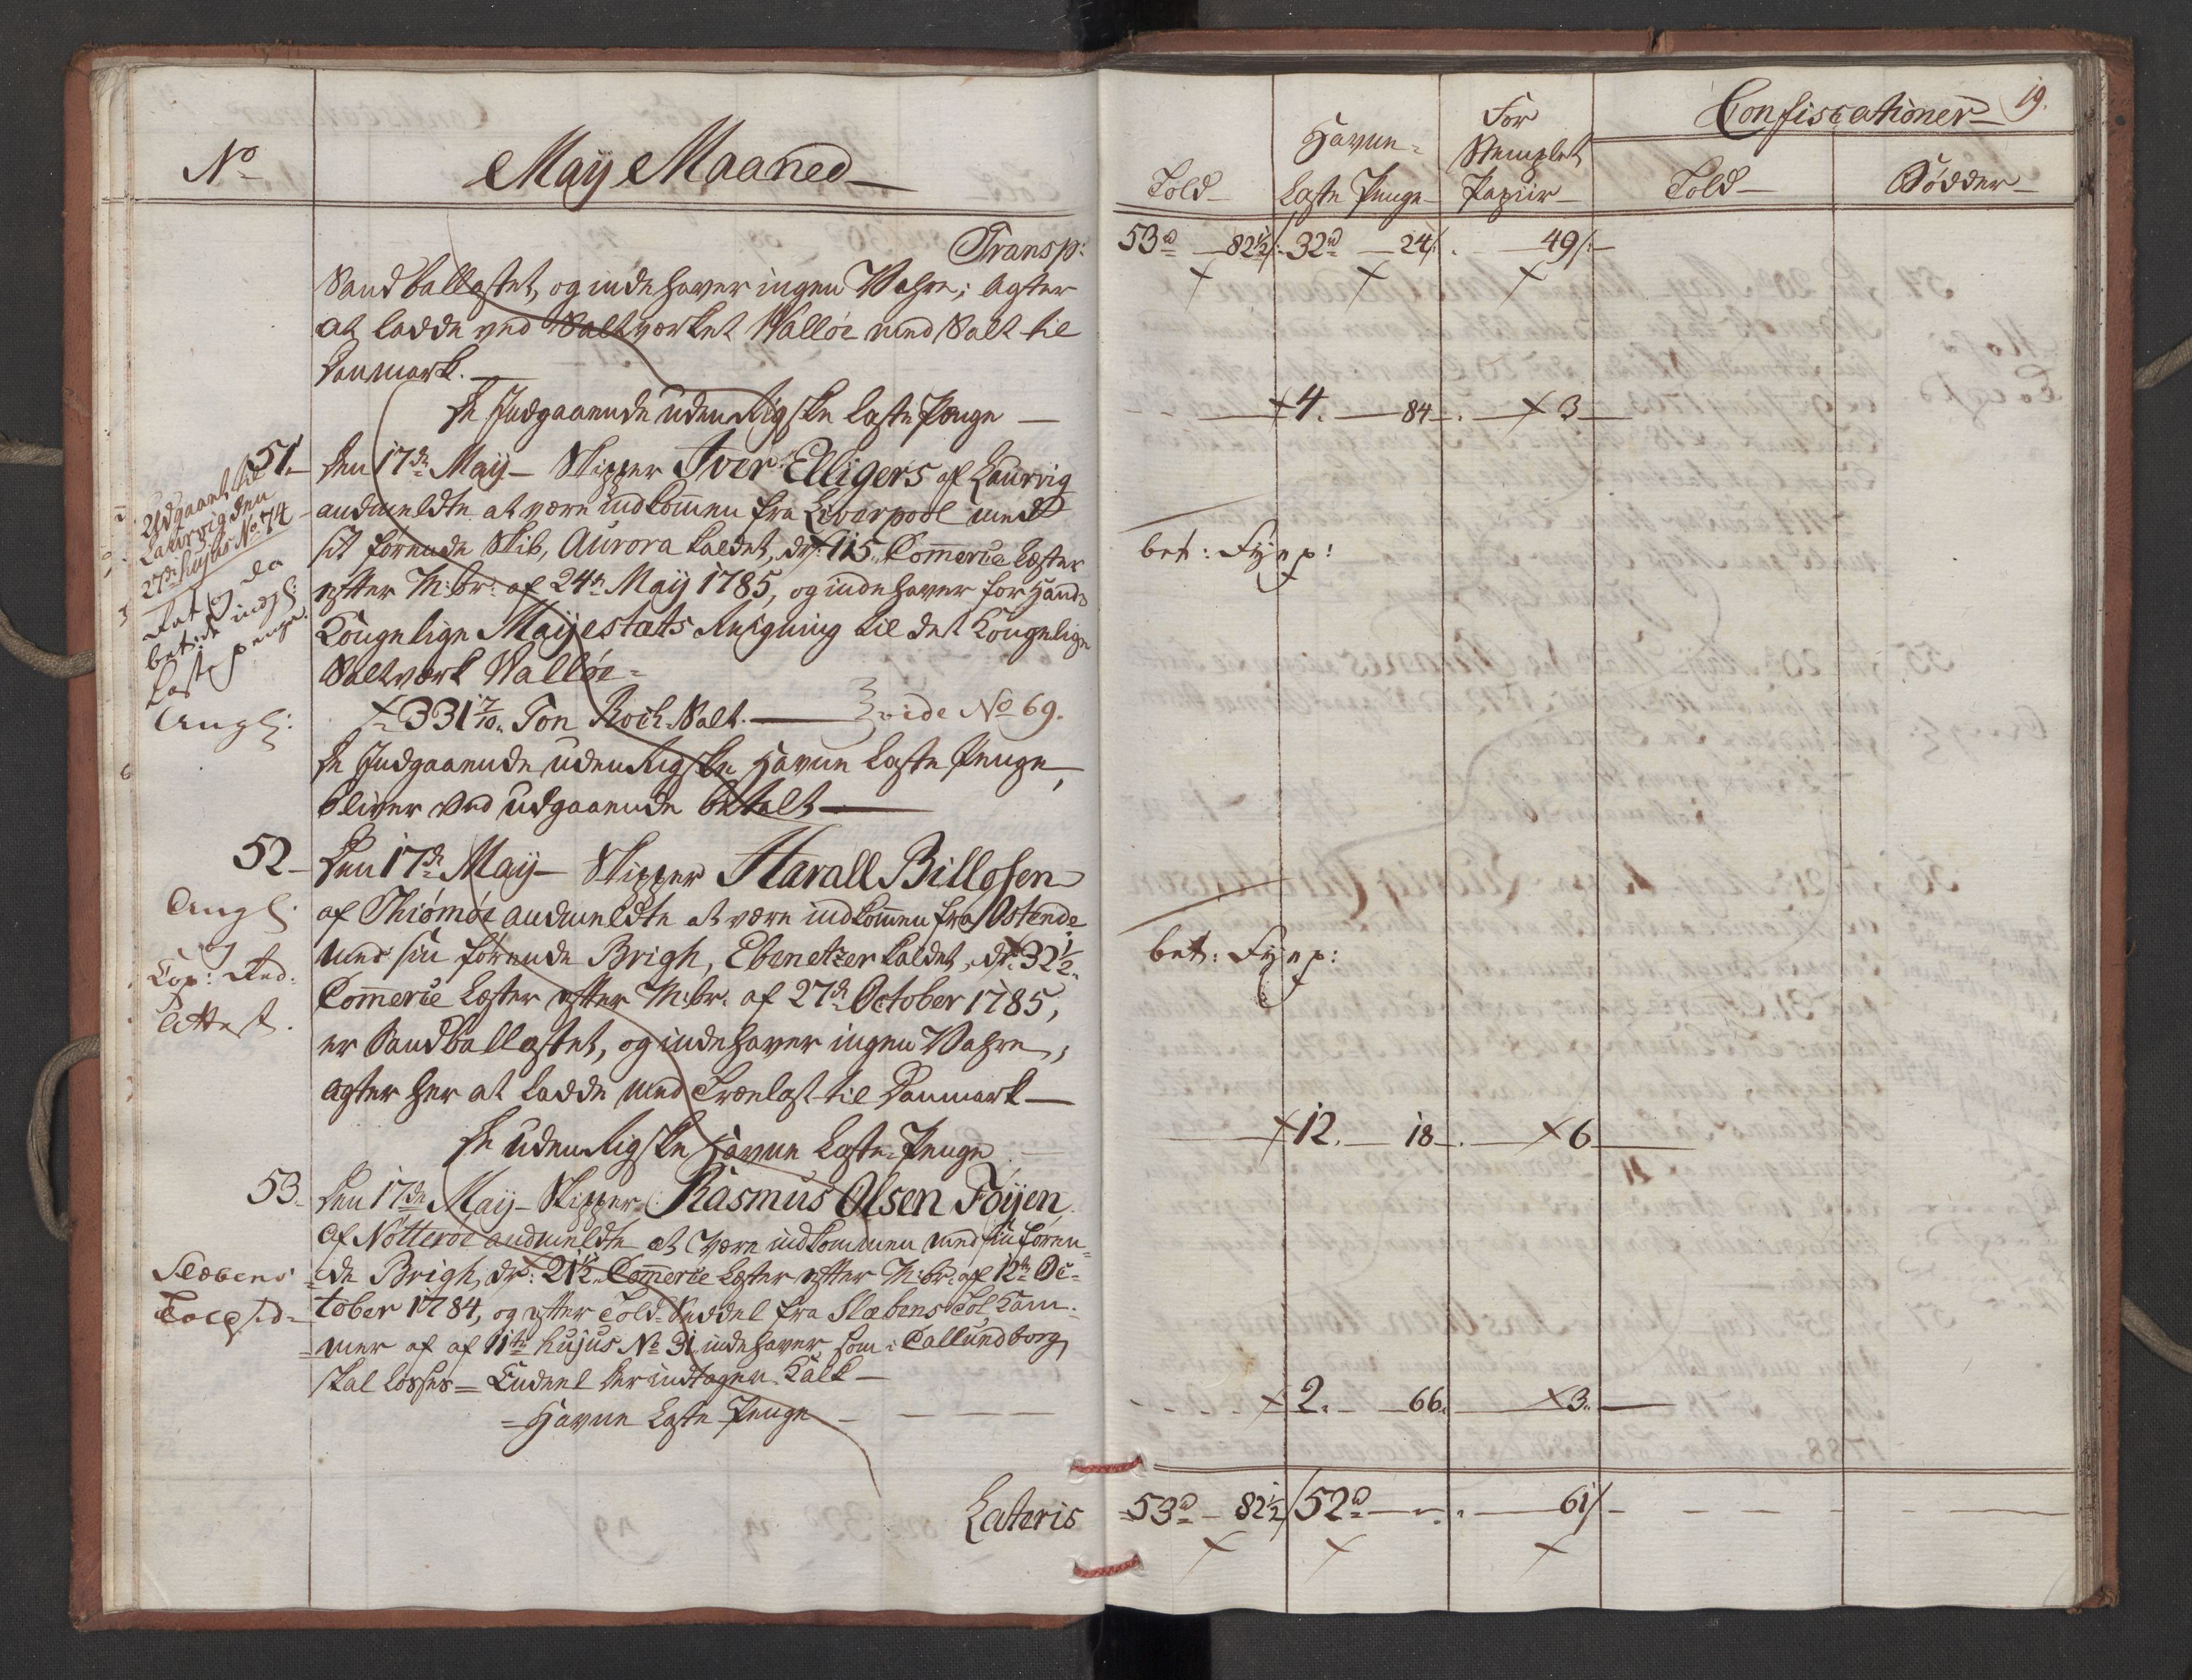 No
Maij Maaned
Transp:
Sandballastet, og indehaver ingen Vahre; agter
at ladde ved Saltværket Walløe med Salt til
Danmark.
De Indgaaende udenrigske Laste Penge
51.
Den 17de Maij Skipper Iver Elligers af Laurvig
andmeldte at være indkommen fra Liverpool med
sit førende Skib, Aurora kaldet, dr: 115 Commerce Læster
efter M:br: af 24de Maij 1785, og indehaver for Hands
Kongelige Maijestæts Regning til det Kongelige
Saltværk Walløe
331 7/10 Ton Rock Salt. vide No 69.
De Indgaaende udenrigske Havne Laste Penge,
bliver ved udgaaende betalt
Udgaaet til
Laurvig den
27de hujus No 74
da
betalt indg:
Laste penge.
Engl:
52
Den 17de Maij Skipper Harall Billosen
af Thiømøe andmeldte at være indkommen fra Ostende
med sin førende Brigh, Ebenetzer kaldet, dr: 32 1/2
Commerce Læster efter M:br: af 27de October 1785,
er Sandballastet, og indehaver ingen Vahre,
agter her at ladde med Trælast til Danmark
De udenrigske Havne Laste Penge
Engl:
og
Cop:
Attest.
53.
Den 17de Maij Skipper Rasmus Olsen Føijen
af Nøtterøe andmeldte at være indkommen med sin føren=
=de Brigh, dr: 21 1/2 Commerce Læster efter M:br: af 12te Oc=
tober 1784, og efter Told-Seddel fra Slæbens Tol Kam=
=mer af af 11te hujus No 31 indehaver, som i Callundborg
skal losses= Endeel her indtagen Kalk
=Havne Laste Penge
Slæbens
Toldsed=
Lateris
19.
Told
Havne=
Laste Penge
For
Stemplet
Papiir
Confiscationer
Told
Bødder
53 rd 82 1/2 /: 32 rd 24 /: 49 /:
4. 84. 3
bet: Fijep:
bet: Fijep:
12. 18. 6
2. 66. 3.
53 rd 82 1/2 / 52 rd 61 /